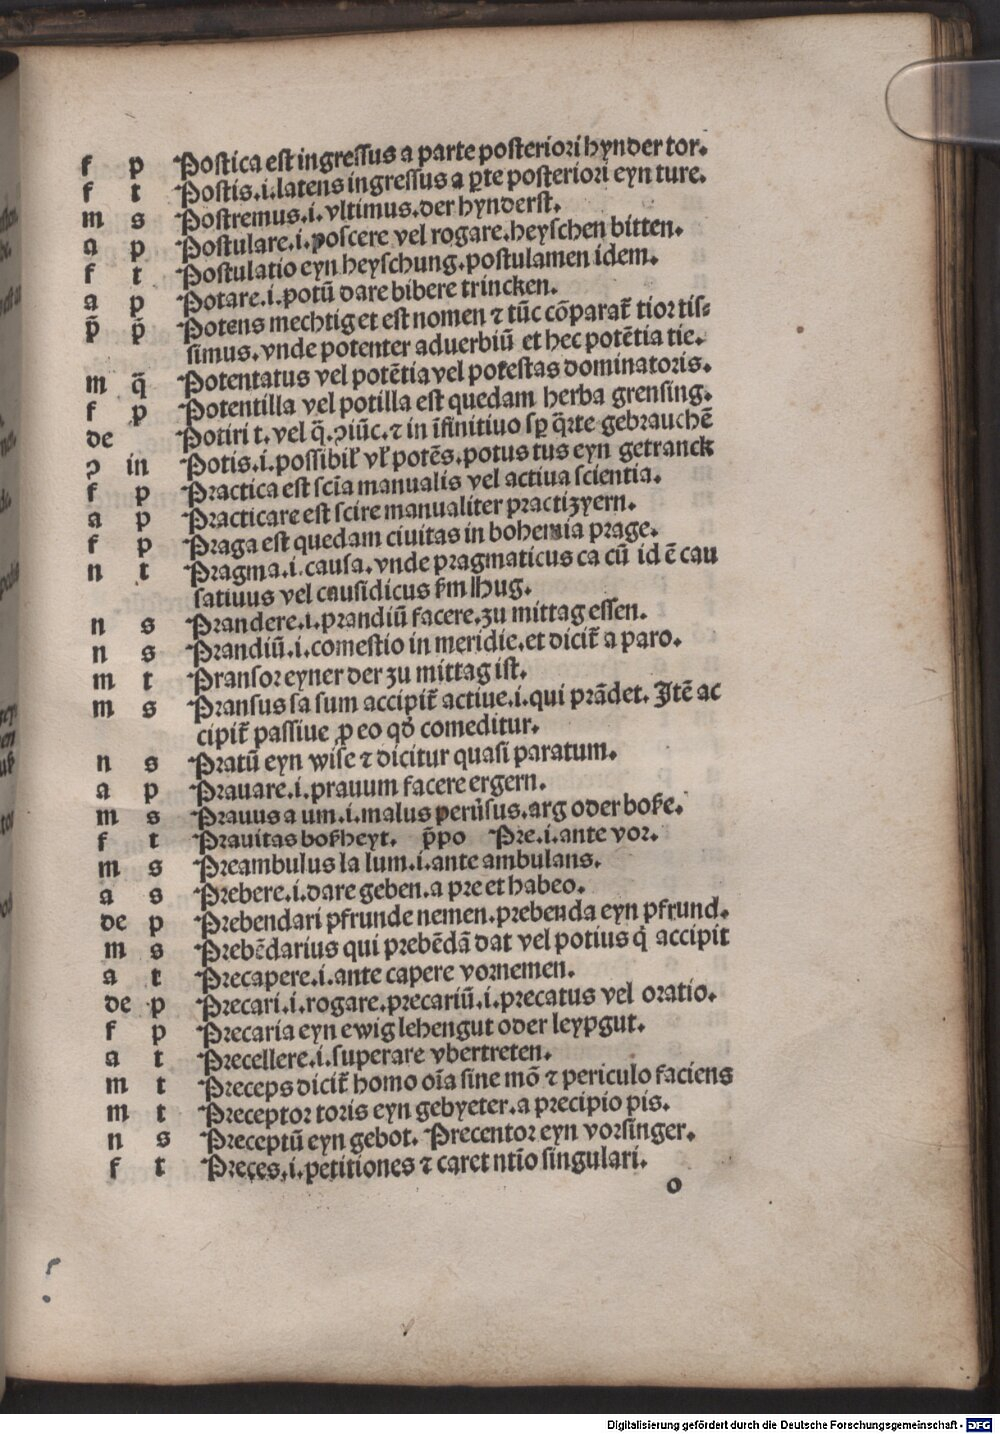 f p Postica est ingressus a parte posteriori hynder tor.
f t Postis.i.latens ingressus a ꝑte posteriori eyn ture.
m s Postremus.i.vltimus.der hynderst.
a p Postulare.i.poscere vel rogare.heyschen bitten.
f t Postulatio eyn heyschung.postulamen idem.
a p Potare.i.potū dare bibere trincken.
p̄ p̄ Potens mechtig et est nomen ⁊ tūc cōparat᷑ tior tis⸗
simus.vnde potenter aduerbiū et hec potētia tie.
m q̄ Potentatus vel potētia vel potestas dominatoris.
f p Potentilla vel potilla est quedam herba grensing.
de Potiri t.vel q̄.ꝯiūc.⁊ in īfinitiuo sꝑ q̄rte gebrauchē
ꝯ in Potis.i.possibil᷑ vl᷑ potēs.potus tus eyn getranck
f p Practica est scīa manualis vel actiua scientia.
a p Practicare est scire manualiter practizyern.
f p Praga est quedam ciuitas in bohemia prage.
n t Pragma.i.causa.vnde pragmaticus ca cū id ē cau
satiuus vel causidicus km̄ Hug.
n s Prandere.i.prandiū facere.zu mittag essen.
n s Prandiū.i.comestio in meridie.et dicit᷑ a paro.
m t Pransor eyner der zu mittag ist.
m s Pransus sa sum accipit᷑ actiue.i.qui prādet. Itē ac
cipit᷑ passiue ꝓ eo qd̓ comeditur.
n s Pratū eyn wise ⁊ dicitur quasi paratum.
a p Prauare.i.prauum facere ergern.
m s Prauus a um.i.malus perūsus.arg oder boße.
f t Prauitas boßheyt. p̄po Pre.i.ante vor.
m s Preambulus la lum.i.ante ambulans.
a s Prebere.i.dare geben.a pre et habeo.
de p Prebendari pfrunde nemen.prebenda eyn pfrund.
m s Prebēdarius qui prebēdā dat vel potius q̇ accipit
a t Precapere.i.ante capere vornemen.
de p Precari.i.rogare.precariū.i.precatus vel oratio.
f p Precaria eyn ewig lehengut oder leypgut.
a t Precellere.i.superare vbertreten.
m t Preceps dicit᷑ homo oīa sine mō ⁊ periculo faciens
m t Preceptor toris eyn gebyeter.a precipio pis.
n s Preceptū eyn gebot. Precentor eyn vorsinger.
f t Preces.i.petitiones ⁊ caret ntīo singulari.
o
Digitalisierung gefördert durch die Deutsche Forschungsgemeinschaft - DFG